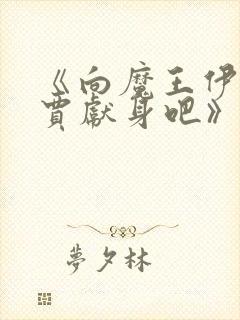 《向魔王伊
賈獻身吧》
夢夕林